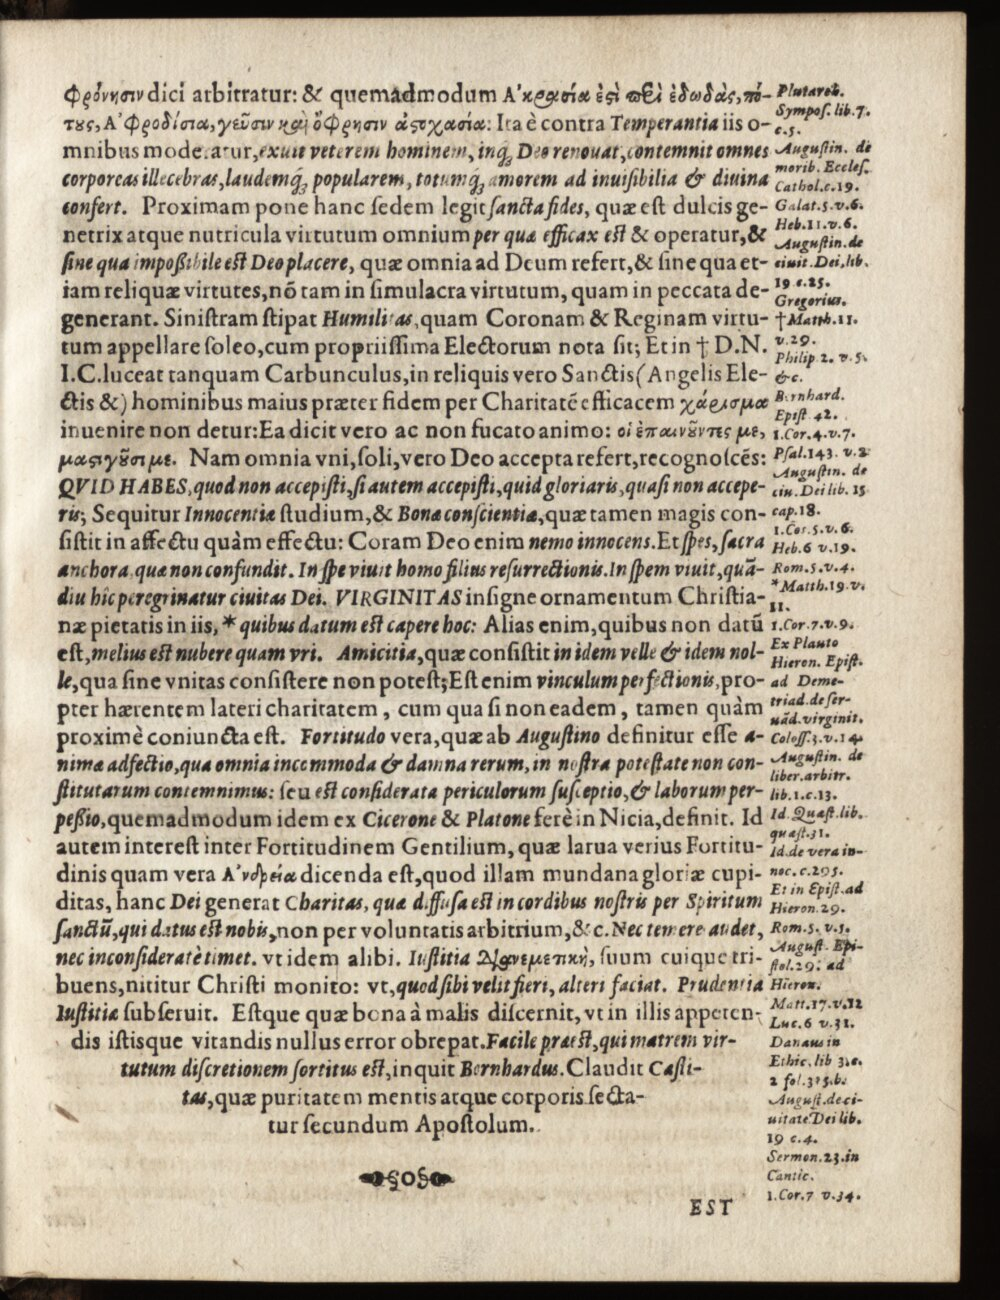 φρόνησιν dici arbitratur: & quemadmodum Ἀκρασία ἐςὶ περὶ ἐδωδὰς, πό-
τους, Ἀφροδίσια, γεῦσιν καὶ ὄσφρησιν ἀςοχασία: Ita è contra Temperantia iis o-
mnibus moderatur, exuit veterem hominem, inq́; Deo renouat, contemnit omnes
corporeas illecebras, laudemq́; popularem, totumq́; amorem ad inuisibilia & diuina
confert. Proximam pone hanc sedem legit sancta fides, quæ est dulcis ge-
netrix atque nutricula virtutum omnium per quā efficax est & operatur, &
sine qua impoßibile est Deo placere, quæ omnia ad Deum refert, & sine qua et-
iam reliquæ virtutes, nō tam in simulacra virtutum, quam in peccata de-
generant. Sinistram stipat Humilitas, quam Coronam & Reginam virtu-
tum appellare soleo, cum propriissima Electorum nota sit; Et in † D.N.
I.C. luceat tanquam Carbunculus, in reliquis vero Sanctis (Angelis Ele-
ctis &) hominibus maius præter fidem per Charitatē efficacem χάρισμα
inuenire non detur: Ea dicit vero ac non fucato animo: οἱ ἐπαινοῦντες με,
μαςιγοῦσι με. Nam omnia vni, soli, vero Deo accepta refert, recognoscēs:
QVID HABES, quod non accepisti, si autem accepisti, quid gloriaris, quasi non accepe-
ris; Sequitur Innocentiæ studium, & Bonæ conscientiæ, quæ tamen magis con-
sistit in affectu quàm effectu: Coram Deo enim nemo innocens. Et spes, sacra
anchora, quæ non confundit. In spe viuit homo filius resurrectionis. In spem viuit, quā-
diu hîc peregrinatur ciuitas Dei. VIRGINITAS insigne ornamentum Christia-
næ pietatis in iis, * quibus datum est capere hoc: Alias enim, quibus non datū
est, melius est nubere quam vri. Amicitia, quæ consistit in idem velle & idem nol-
le, qua sine vnitas consistere non potest; Est enim vinculum perfectionis, pro-
pter hærentem lateri charitatem, cum qua si non eadem, tamen quàm
proximè coniuncta est. Fortitudo vera, quæ ab Augustino definitur esse a-
nimæ adfectio, qua omnia incommoda & damna rerum, in nostra potestate non con-
stitutarum contemnimus: seu est considerata periculorum susceptio, & laborum per-
peßio, quemadmodum idem ex Cicerone & Platone ferè in Nicia, definit. Id
autem interest inter Fortitudinem Gentilium, quæ larua verius Fortitu-
dinis quam vera Ἀνδρεία dicenda est, quod illam mundana gloriæ cupi-
ditas, hanc Dei generat Charitas, quæ diffusa est in cordibus nostris per Spiritum
sanctū, qui datus est nobis, non per voluntatis arbitrium, &c. Nec temere audet,
nec inconsideratè timet. vt idem alibi. Iustitia Διανεμετικὴ, suum cuique tri-
buens, nititur Christi monito: vt, quod sibi velit fieri, alteri faciat. Prudentia
Iustitiæ subseruit. Estque quæ bona à malis discernit, vt in illis appeten-
dis istisque vitandis nullus error obrepat. Facile præest, qui matrem vir-
tutum discretionem sortitus est, inquit Bernhardus. Claudit Casti-
tas, quæ puritatem mentis atque corporis secta-
tur secundum Apostolum.
§o§
EST
Plutarch.
Sympos. lib. 7.
c. 5.
Augustin. de
morib. Eccles.
Cathol. c. 19.
Galat. 5. v. 6.
Heb. 11. v. 6.
Augustin. de
ciuit. Dei, lib.
19 c. 25.
Gregorius.
† Matth. 11.
v. 29.
Philip 2. v. 5.
&c.
Bernhard.
Epist 42.
1. Cor. 4. v. 7.
Psal. 143. v. 2
Augustin. de
ciu. Dei lib. 15
cap. 18.
1. Cor. 5. v. 6.
Heb. 6 v. 19.
Rom. 5. v. 4.
* Matth. 19. v.
11.
1. Cor. 7. v. 9.
Ex Plauto
Hieron. Epist.
ad Deme-
triad. de ser-
uād. virginit.
Coloss. 3. v. 14.
Augustin. de
liber. arbitr.
lib. 1. c. 13.
Id. Quæst. lib.
quæst. 31.
Id. de vera in-
noc. c. 295.
Et in Epist. ad
Hieron. 29.
Rom. 5. v. 5.
August. Epi-
stol. 29. ad
Hieron.
Matt. 17. v. 12
Luc. 6 v. 31.
Danæus in
Ethic. lib 3. c.
2 fol. 315. b.
August. de ci-
uitate Dei lib.
19 c. 4.
Sermon. 23. in
Cantic.
1. Cor. 7 v. 34.